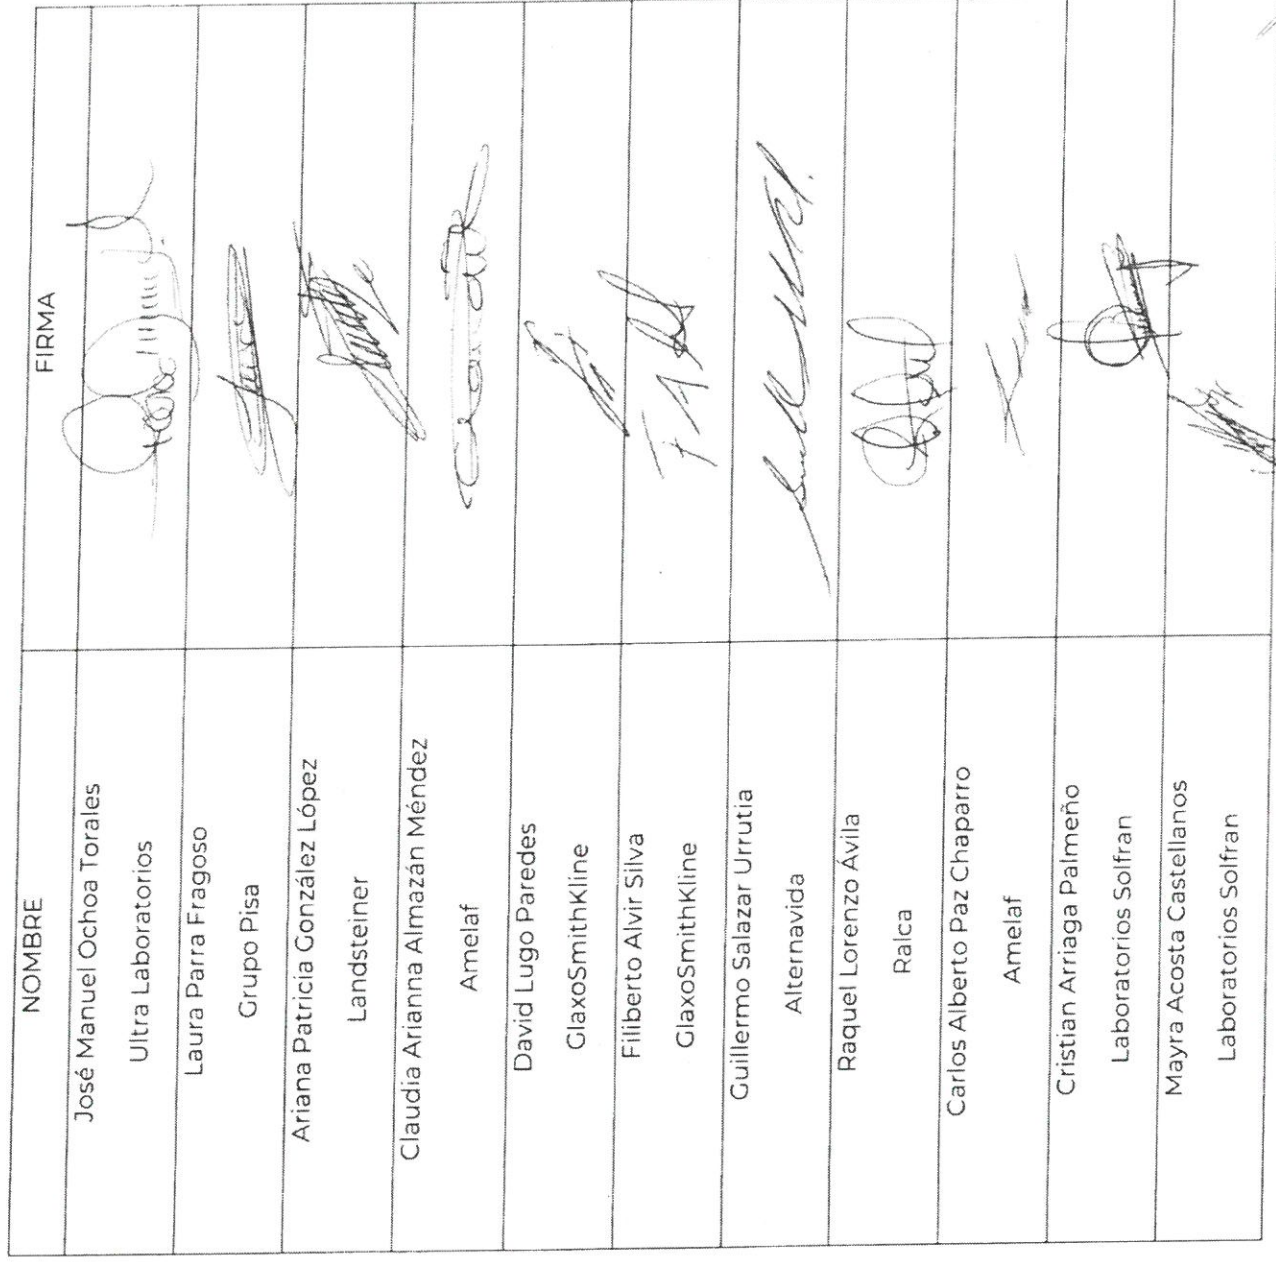 NOMBRE
FIRMA
José Manuel Ochoa Torales
Ultra Laboratorios
Laura Parra Fragoso
Grupo Pisa
Ariana Patricia González López
Landsteiner
Claudia Arianna Almazán Méndez
Amelaf
David Lugo Paredes
GlaxoSmithKline
Filiberto Alvir Silva
GlaxoSmithKline
Guillermo Salazar Urrutia
Alternavida
Raquel Lorenzo Ávila
Ralca
Carlos Alberto Paz Chaparro
Amelaf
Cristian Arriaga Palmeño
Laboratorios Solfran
Mayra Acosta Castellanos
Laboratorios Solfran